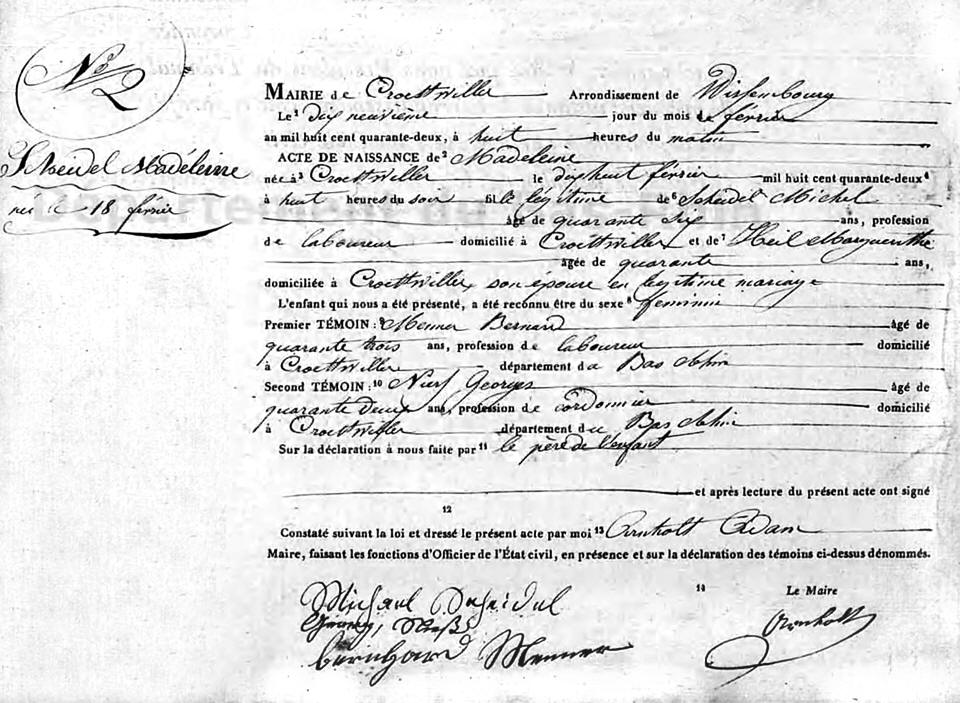 No 2
Scheidel Madéleine
née le 18 février
MAIRIE de Croettwiller Arrondissement de Wissembourg
Le 1 dix neuvième jour du mois de février
an mil huit cent quarante-deux, à huit heures du matin
ACTE DE NAISSANCE de 2 Madeleine
née à 3 Croettwiller le dix huit février mil huit cent quarante-deux 4
à huit heures du soir fille légitime de 6 Scheidel Michel
âgé de quarante six ans, profession
de laboureur domicilié à Croettwiller et de 7 Heil Marguerithe
âgée de quarante ans,
domiciliée à Croettwiller, son épouse en légitime mariage
L'enfant qui nous a été présenté, a été reconnu être du sexe 8 feminin
Premier TÉMOIN : 9 Menner Bernard âgé de
quarante trois ans, profession de laboureur domicilié
à Croettwiller département du Bas Rhin
Second TÉMOIN : 10 Georges âgé de
quarante deux ans, profession de cordonnier domicilié
à Croettwiller département du Bas Rhin
Sur la déclaration à nous faite par 11 le père de l'enfant
et après lecture du présent acte ont signé
12
Constaté suivant la loi et dressé le présent acte par moi 13 Arnholt Adam
Maire, faisant les fonctions d'Officier de l'État civil, en présence et sur la déclaration des témoins ci-dessus dénommés.
14 Le Maire
Michael Scheidel
Georg
Bernhard Menner
Arnholt